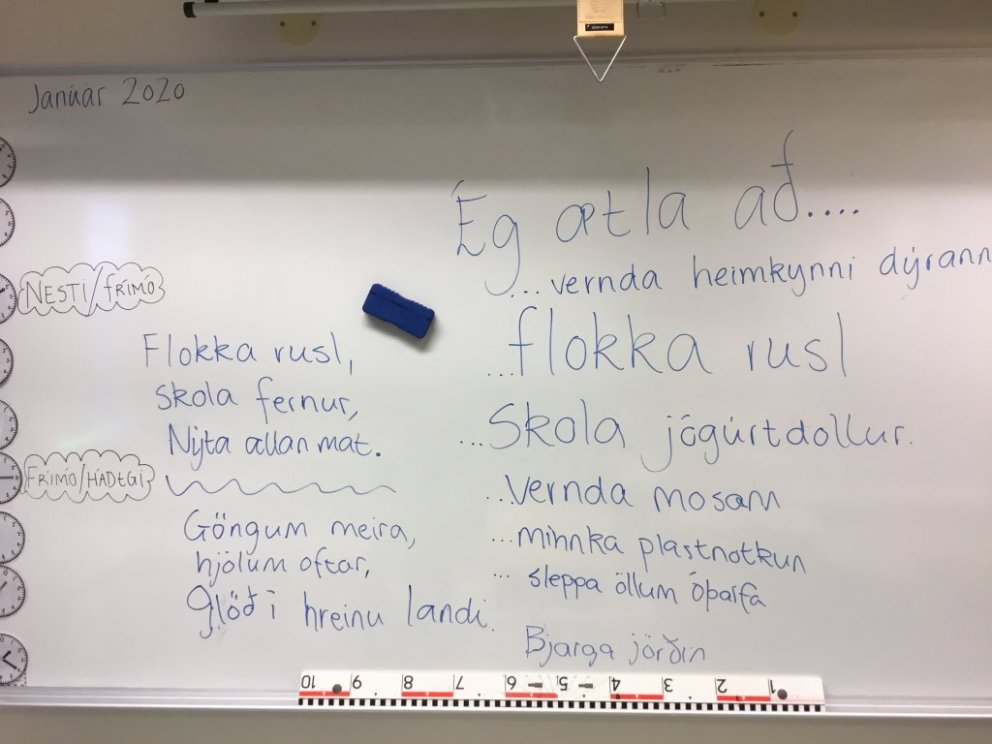 Janúar 2020
NESTI/FRIMÓ
Flokka rusl,
skola fernur,
Nýta allan mat.
FRIMÓ/HÁDEGI
Göngum meira,
hjólum oftar,
glöð í hreinu landi.
Ég ætla að....
...vernda heimkynni dýrann
...flokka rusl
...skola jógúrtdollur.
...vernda mosann
...minnka plastnotkun
... sleppa öllum óþarfa
Bjarga jörðin
10 9 8 7 6 5 4 3 2 1